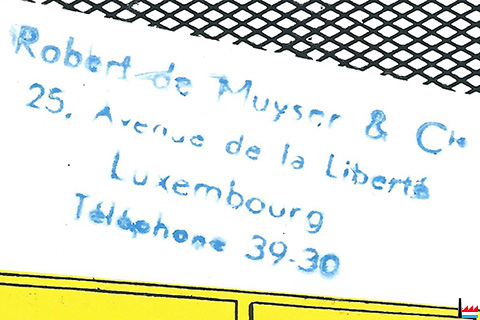 Robert de Muyser & Cie
25, Avenue de la Liberté
Luxembourg
Téléphone 39-30